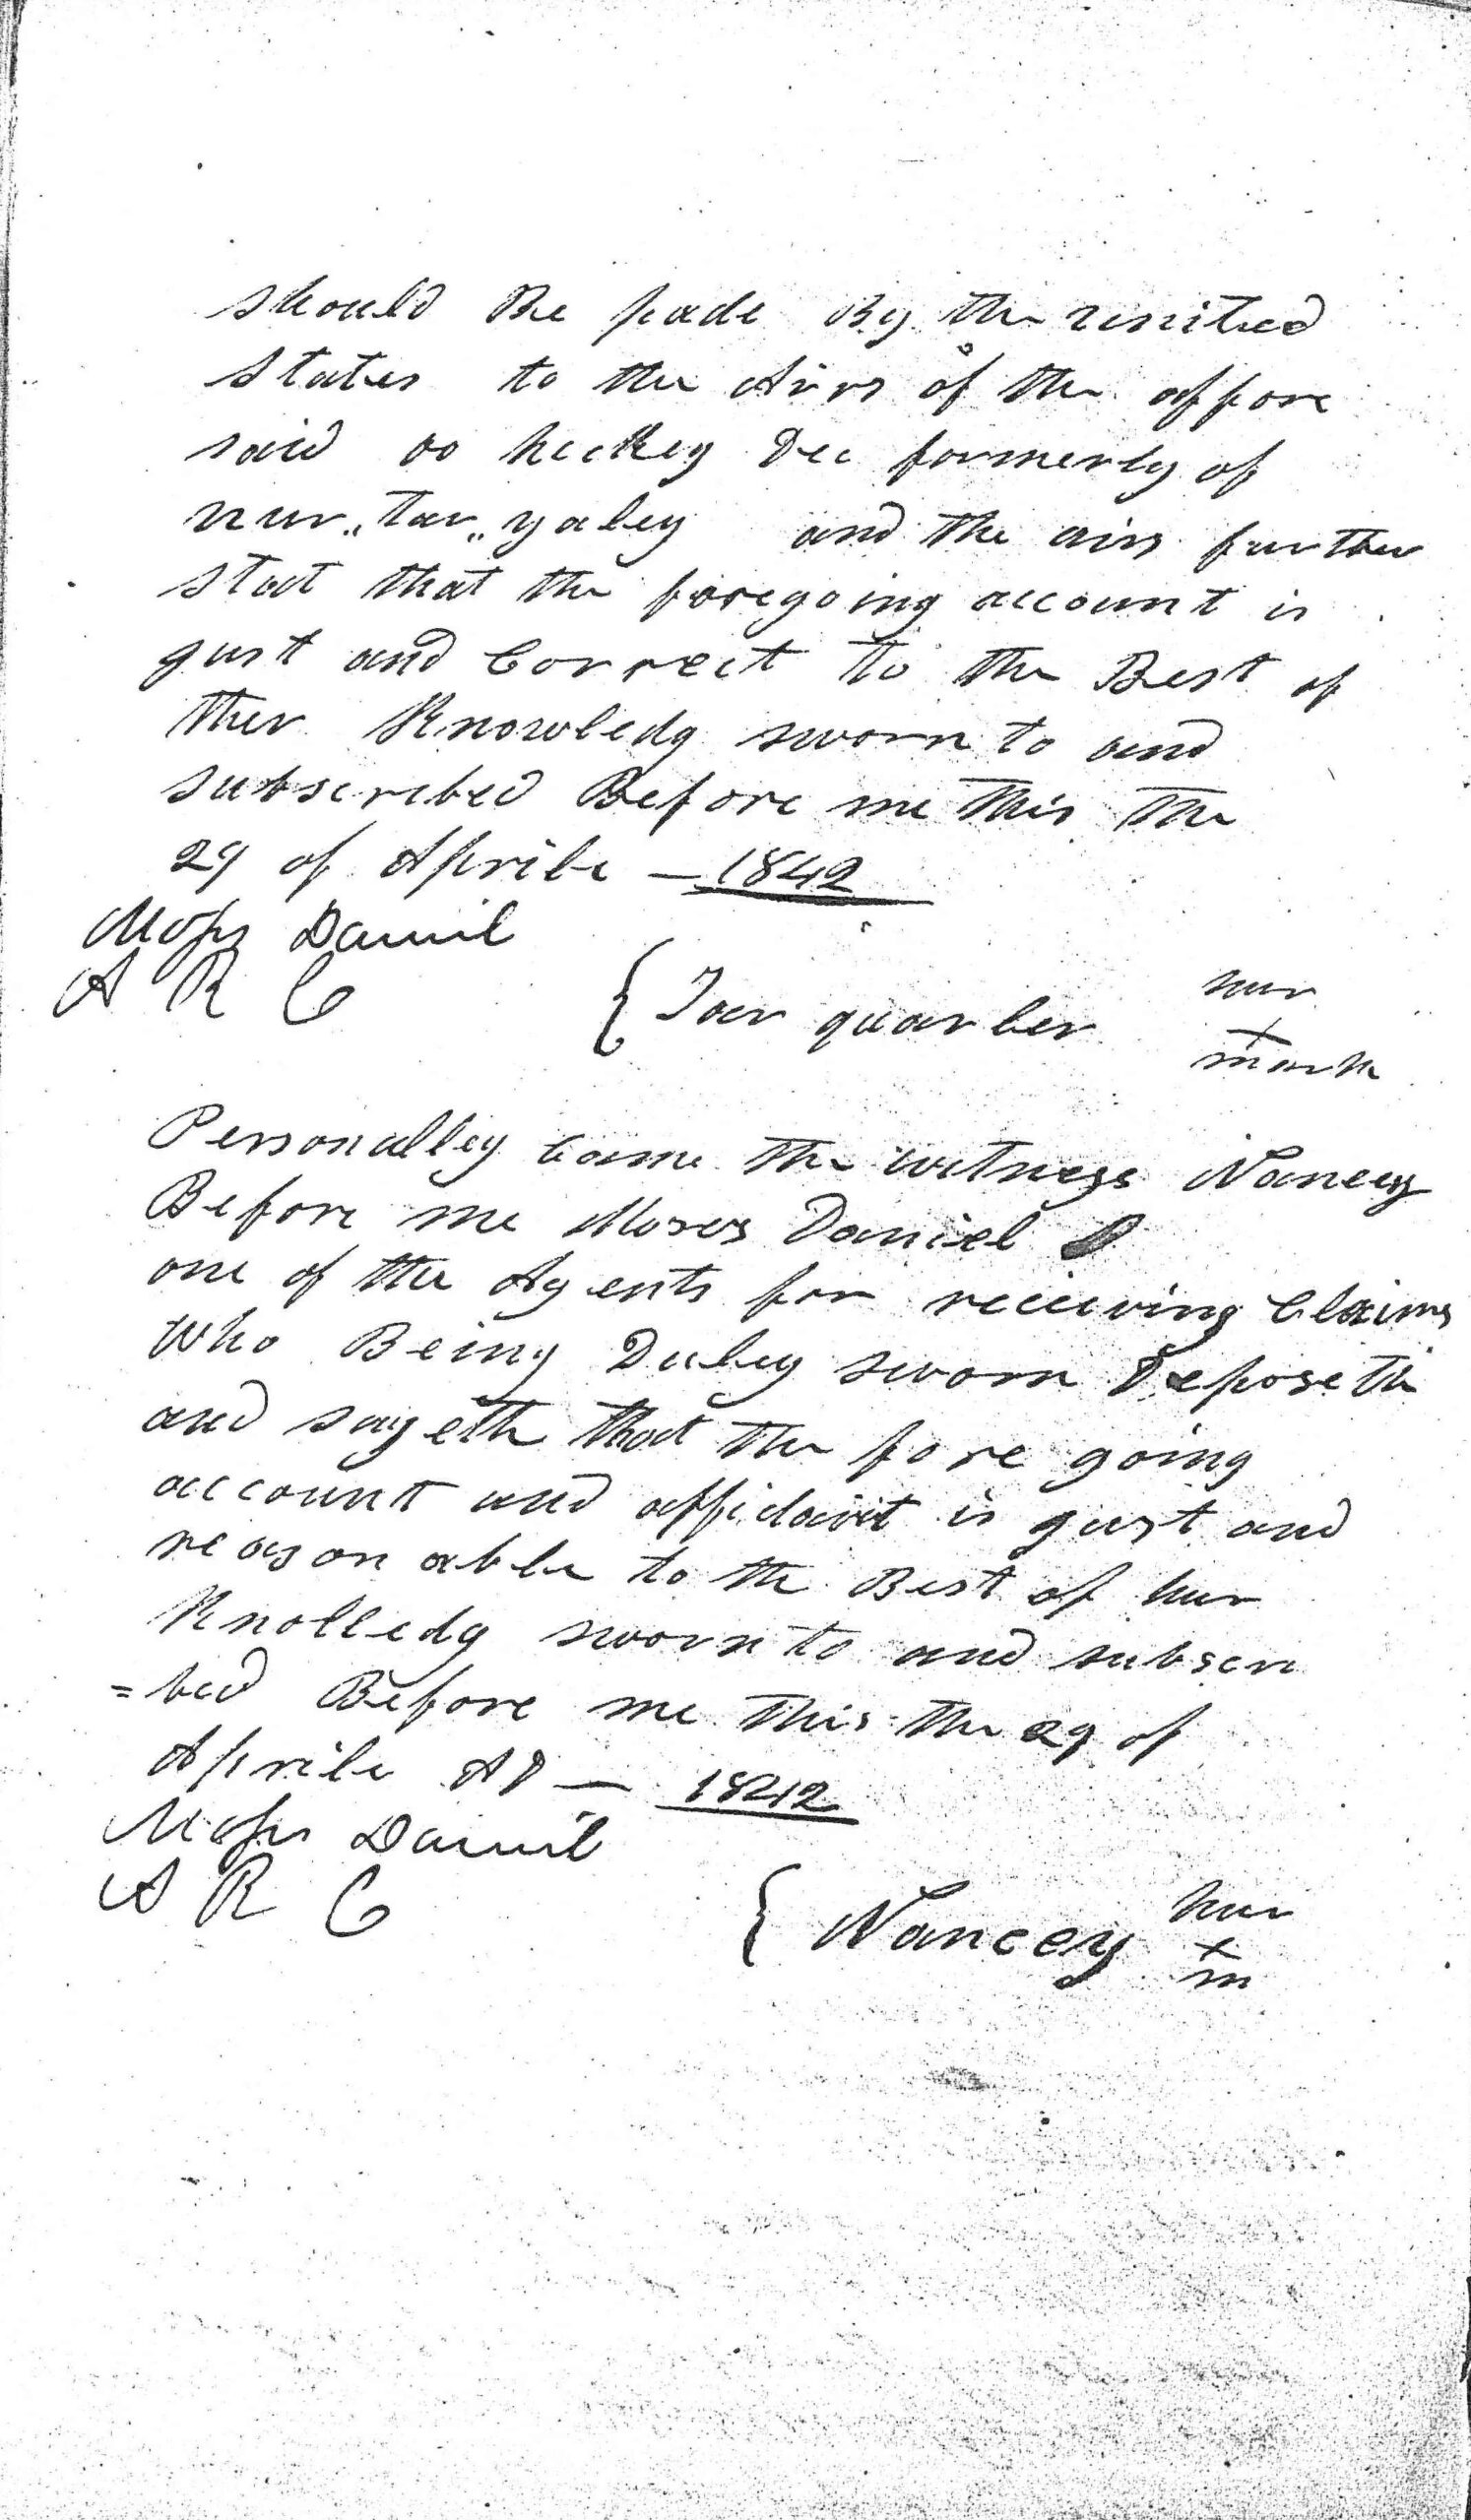 should Be pade By the united
states to the Airs of the affore
said oo heckey Dec formerly of
nur„tar„yaley and the airs further
stat that the foregoing account is
gust and Correct to the Best of
ther Knowledg sworn to and
subscribed Before me This The
29 of Aprile — 1842
Moses Daniel
A R C
{ quarler hur
x
mark
Personalley Came the witness Nancey
Before me Moses Daniel
one of the Agents for receiving Claims
Who Being Duley sworn Deposeth
and sayeth that the fore going
account and affidavit is gust and
reason able to the Best of hur
Knolledg sworn to and subscri
=bed Before me This the 29 of
Aprile AD — 1842
Moses Daniel
A R C
{ Nancey hur
x
m